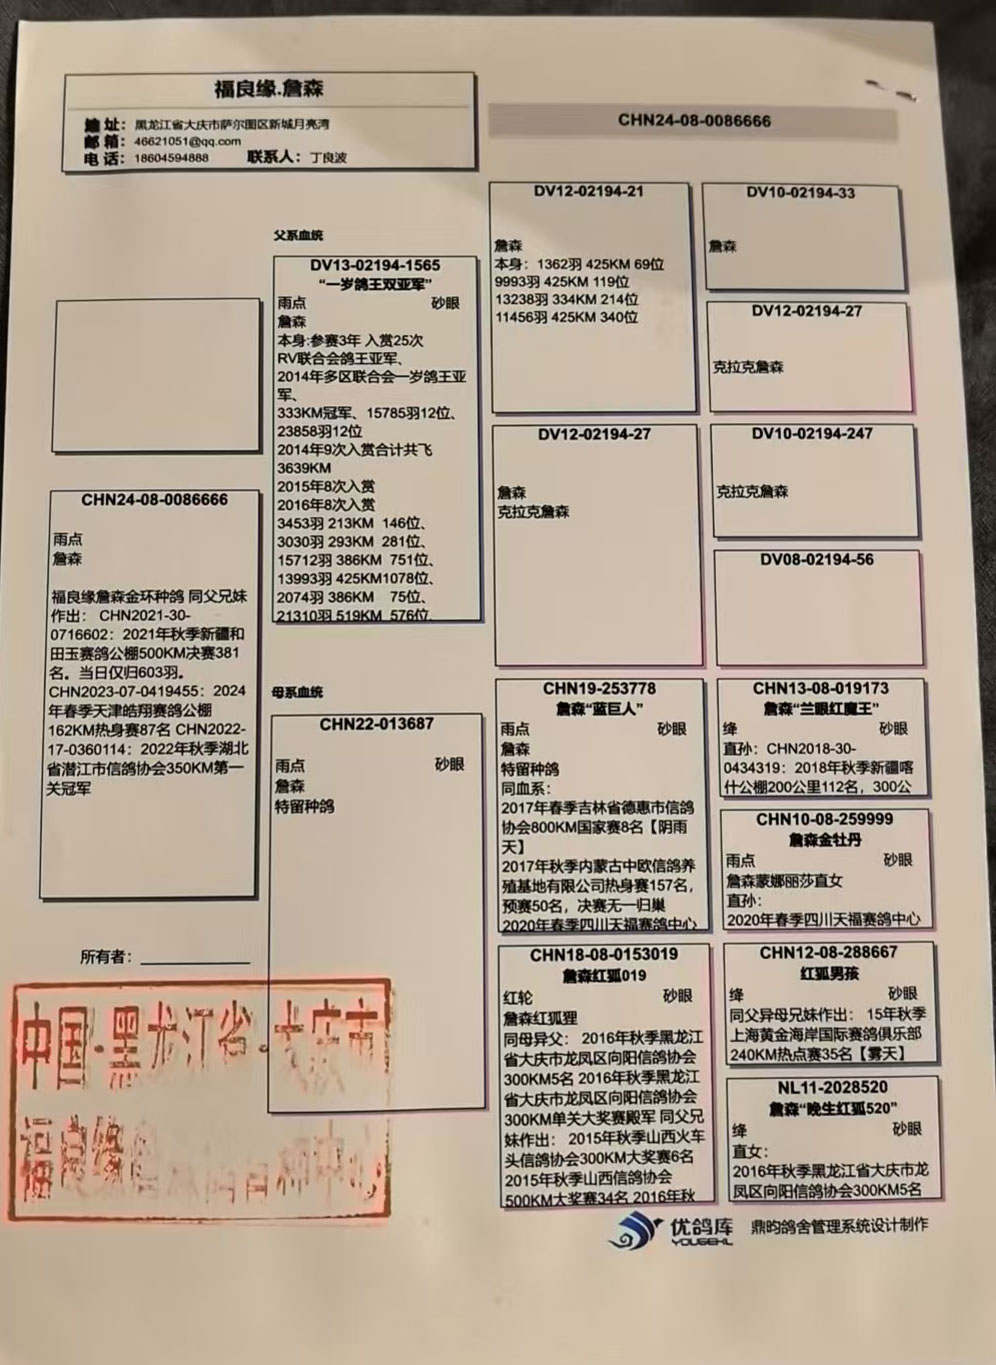 福良缘.詹森
地 址：黑龙江省大庆市萨尔图区新城月亮湾
邮 箱：46621051@qq.com
电 话：18604594888 联系人：丁良波
CHN24-08-0086666
CHN24-08-0086666
雨点
詹森
福良缘詹森金环种鸽 同父兄妹
作出： CHN2021-30-
0716602：2021年秋季新疆和
田玉赛鸽公棚500KM决赛381
名。当日仅归603羽。
CHN2023-07-0419455：2024
年春季天津皓翔赛鸽公棚
162KM热身赛87名 CHN2022-
17-0360114：2022年秋季湖北
省潜江市信鸽协会350KM第一
关冠军
所有者：
父系血统
DV13-02194-1565
“一岁鸽王双亚军”
雨点 砂眼
詹森
本身:参赛3年 入赏25次
RV联合会鸽王亚军、
2014年多区联合会一岁鸽王亚
军、
333KM冠军、15785羽12位、
23858羽12位
2014年9次入赏合计共飞
3639KM
2015年8次入赏
2016年8次入赏
3453羽 213KM 146位、
3030羽 293KM 281位、
15712羽 386KM 751位、
13993羽 425KM1078位、
2074羽 386KM 75位、
21310羽 519KM 576位
母系血统
CHN22-013687
雨点 砂眼
詹森
特留种鸽
DV12-02194-21
詹森
本身：1362羽 425KM 69位
9993羽 425KM 119位
13238羽 334KM 214位
11456羽 425KM 340位
DV12-02194-27
詹森
克拉克詹森
CHN19-253778
詹森“蓝巨人”
雨点 砂眼
詹森
特留种鸽
同血系：
2017年春季吉林省德惠市信鸽
协会800KM国家赛8名【阴雨
天】
2017年秋季内蒙古中欧信鸽养
殖基地有限公司热身赛157名，
预赛50名，决赛无一归巢
2020年春季四川天福赛鸽中心
CHN18-08-0153019
詹森红狐019
红轮 砂眼
詹森红狐狸
同母异父： 2016年秋季黑龙江
省大庆市龙凤区向阳信鸽协会
300KM5名 2016年秋季黑龙江
省大庆市龙凤区向阳信鸽协会
300KM单关大奖赛殿军 同父兄
妹作出： 2015年秋季山西火车
头信鸽协会300KM大奖赛6名
2015年秋季山西信鸽协会
500KM大奖赛34名 2016年秋
DV10-02194-33
詹森
DV12-02194-27
克拉克詹森
DV10-02194-247
克拉克詹森
DV08-02194-56
CHN13-08-019173
詹森“兰眼红魔王”
绛 砂眼
直孙：CHN2018-30-
0434319：2018年秋季新疆喀
什公棚200公里112名，300公
CHN10-08-259999
詹森金牡丹
雨点 砂眼
詹森蒙娜丽莎直女
直孙：
2020年春季四川天福赛鸽中心
CHN12-08-288667
红狐男孩
绛 砂眼
同父异母兄妹作出： 15年秋季
上海黄金海岸国际赛鸽俱乐部
240KM热点赛35名【雾天】
NL11-2028520
詹森“晚生红狐520”
绛 砂眼
直女：
2016年秋季黑龙江省大庆市龙
凤区向阳信鸽协会300KM5名
中国·黑龙江省·大庆市
福良缘
优鸽库
YOUGEKU
鼎昀鸽舍管理系统设计制作